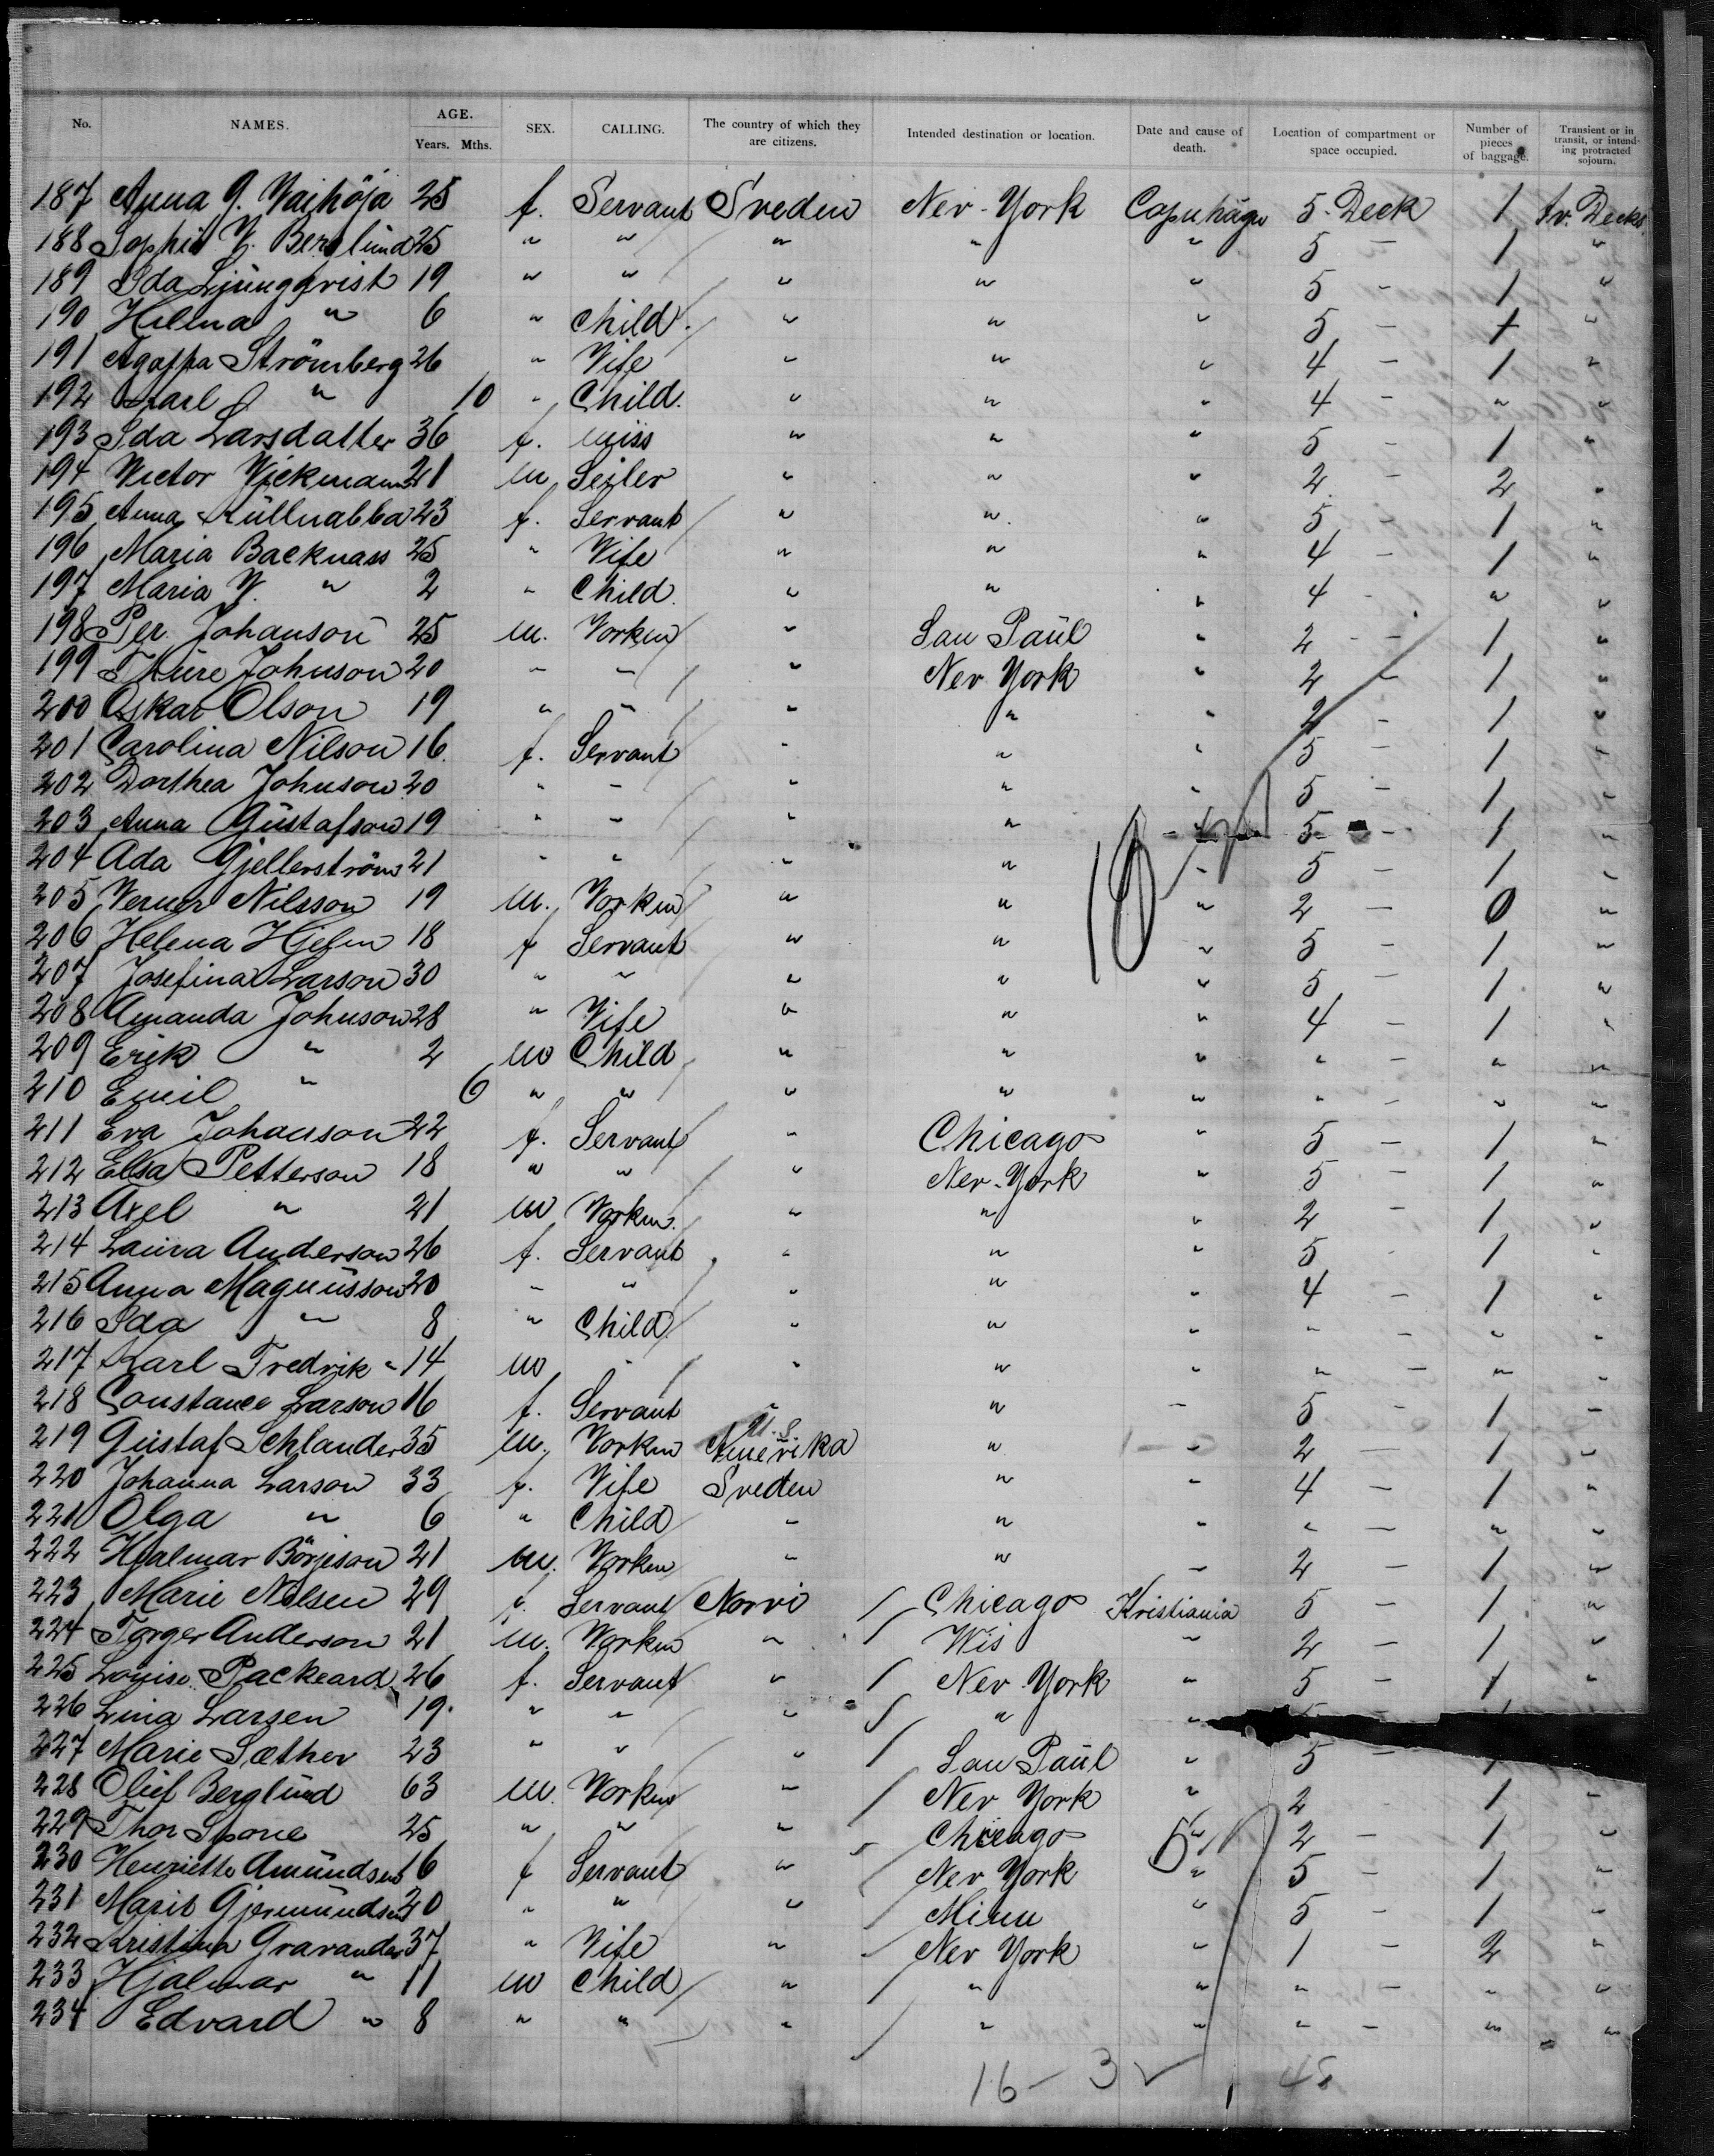 No. NAMES. AGE. Years. Mths. SEX. CALLING. The country of which they are citizens. Intended destination or location. Date and cause of death. Location of compartment or space occupied. Number of pieces of baggage. Transient or in transit, or intending protracted sojourn.
187 Anna G. 25 f. Servant Sveden Nev-York 5. Deck 1
188 Sophia V. Berglund 25 " " " " " 5 - 1 "
189 Ida Ljungqvist 19 " " " " " 5 - 1 "
190 Hilma " 6 " Child. " " " 5 - 1 "
191 Strömberg 26 " Vife " " " 4 - 1 "
192 Karl " 10 " Child. " " " 4 - " "
193 Ida Larsdatter 36 f. Miss " " " 5 - 1 "
194 Victor Vickmann 21 m. Seiler " " " 2 - 2 "
195 Anna 23 f. Servant " " " 5 - 1 "
196 Maria Backnass 25 " Vife " " " 4 - 1 "
197 Maria V. " 2 " Child. " " " 4 - " "
198 Per Johanson 25 m. Vorkm " San Paul " 2 - 1 "
199 Thure Johnson 20 " " " Nev York " 2 - 1 "
200 Oskar Olson 19 " " " " " 2 - 1 "
201 Carolina Nilson 16 f. Servant " " " 5 - 1 "
202 Dorthea Johnson 20 " " " " " 5 - 1 "
203 Anna Gustafson 19 " " " " " 5 - 1 "
204 Ada Gjellerström 21 " " " " " 5 - 1 "
205 Verner Nilsson 19 m. Vorkm " " " 2 - 0 "
206 Helena Hjelm 18 f Servant " " " 5 - 1 "
207 Josefina Larson 30 " " " " " 5 - 1 "
208 Amanda Johnson 28 " Vife " " " 4 - 1 "
209 Erik " 2 m Child " " " " - " "
210 Emil " 6 " " " " " " - " "
211 Eva Johanson 22 f. Servant " Chicago " 5 - 1 "
212 Elsa Petterson 18 " " " Nev-York " 5 - 1 "
213 Axel " 21 m Vorkm. " " " 2 - 1 "
214 Laura Anderson 26 f. Servant " " " 5 - 1 "
215 Anna Magnusson 20 " " " " " 4 - 1 "
216 Ida " 8 " Child " " " " - " "
217 Karl Fredrik " 14 m " " " " " - " "
218 Constance Larson 16 f. Servant " " " 5 - 1 "
219 Gustaf Schlander 35 m. Vorkm U.S. Amerika " " 2 - 1 "
220 Johanna Larson 33 f. Vife Sveden " " 4 - 1 "
221 Olga " 6 " Child " " " " - " "
222 Hjalmar Börjeson 21 m. Vorkm " " " 2 - 1 "
223 Marie Nilsen 29 f. Servant Norvi Chicago Kristiania 5 - 1 "
224 Torger Anderson 21 m. Vorkm " Wis " 2 - 1 "
225 Louise Packeard 26 f. Servant " Nev York " 5 - 1 "
226 Lina Larsen 19. " " " " "
227 Marie Sæther 23 " " " San Paul " 5 - 1
228 Oluf Berglund 63 m. Vorkm " Nev York " 2 - 1 "
229 Thor 25 " " " Chicago " 2 - 1 "
230 Henriette Amundsen 16 f Servant " Nev York " 5 - 1 "
231 Marit Gjermundsen 20 " " " Minn " 5 - 1 "
232 Kristina Gravander 37 " Vife " Nev York " 1 - 2 "
233 Hjalmar " 11 m Child " " " " - " "
234 Edvard " 8 " " " " " " - " "
16 - 3 48